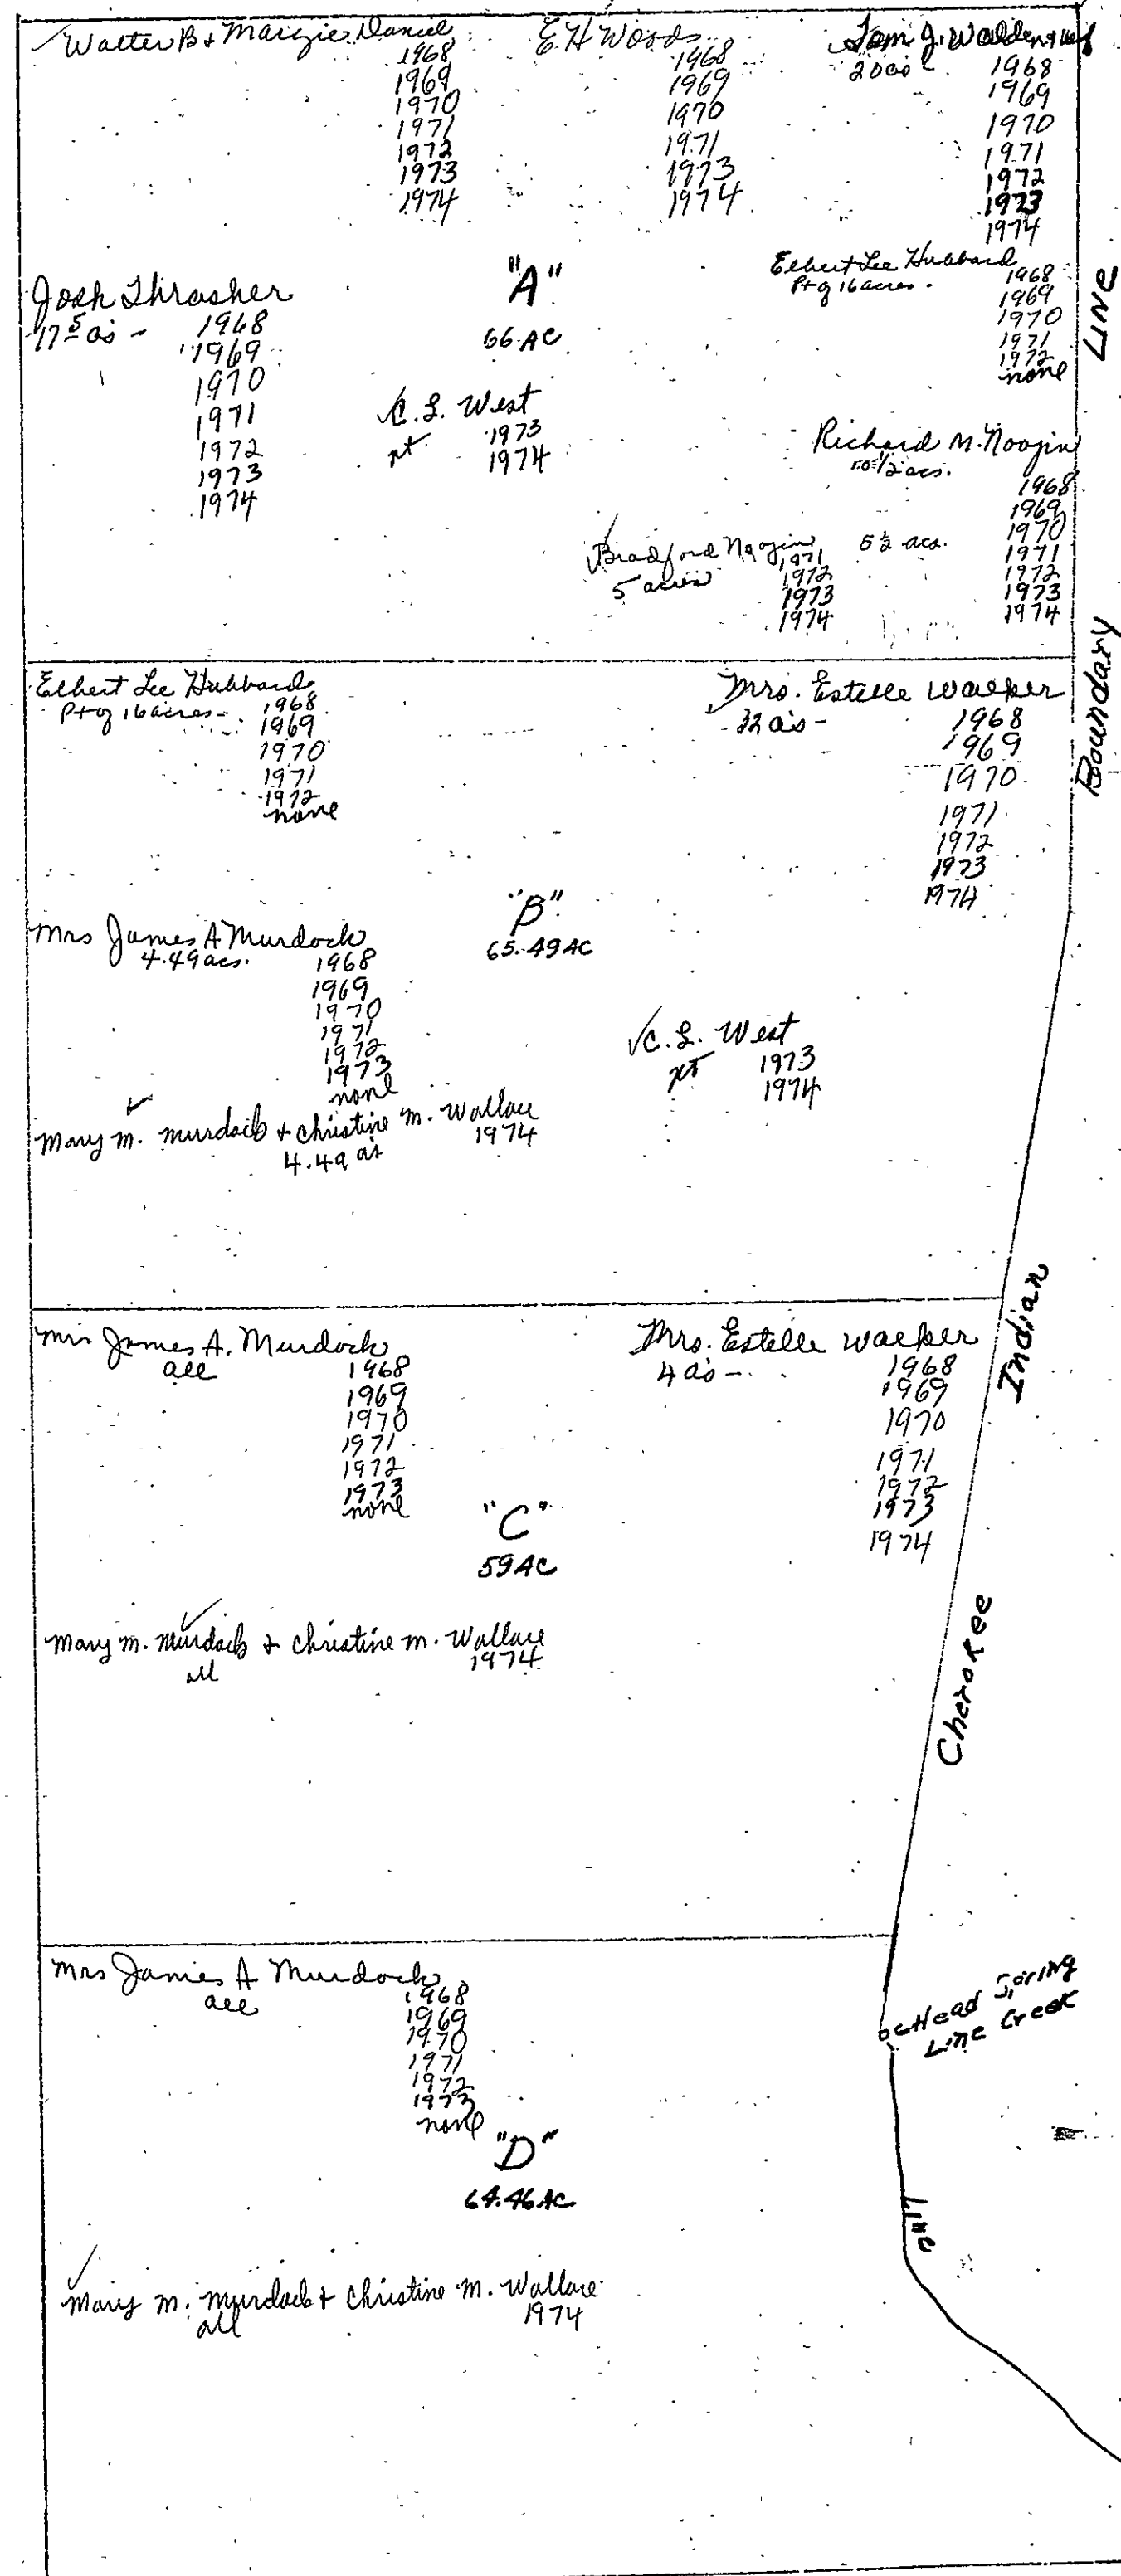 Walter B & Margie Daniel
1968
1969
1970
1971
1972
1973
1974
E. H Woods
1968
1969
1970
1971
1973
1974
Tom J. Walden
20 as
1968
1969
1970
1971
1972
1973
1974
Josh Thrasher
17 5 as -
1968
1969
1970
1971
1972
1973
1974
"A"
66 AC
Elbert Lee Hubbard
Pt of 16 acres -
1968
1969
1970
1971
1972
none
C. L. West
pt
1973
1974
Richard M. Noojin
10 1/2 acs.
5 1/2 acs.
1968
1969
1970
1971
1972
1973
1974
Bradford Noojin
5 acres
1971
1972
1973
1974
Elbert Lee Hubbard
Pt of 16 acres -
1968
1969
1970
1971
1972
none
Mrs. Estelle Walker
32 as -
1968
1969
1970
1971
1972
1973
1974
"B"
65.49 AC
Mrs James A Murdock
4.49 acs.
1968
1969
1970
1971
1972
1973
none
C. L. West
pt
1973
1974
Mary M. Murdock & Christine M. Wallace
1974
4.49 as
Mrs James A. Murdock
all
1968
1969
1970
1971
1972
1973
none
Mrs. Estelle Walker
4 as -
1968
1969
1970
1971
1972
1973
1974
"C"
59 AC
Mary M. Murdock & Christine M. Wallace
all
1974
Mrs James A Murdock
all
1968
1969
1970
1971
1972
1973
none
"D"
64.46 AC
Mary M. Murdock & Christine M. Wallace
all
1974
Cherokee Indian Boundary LINE
Head Spring
Line Creek
Line